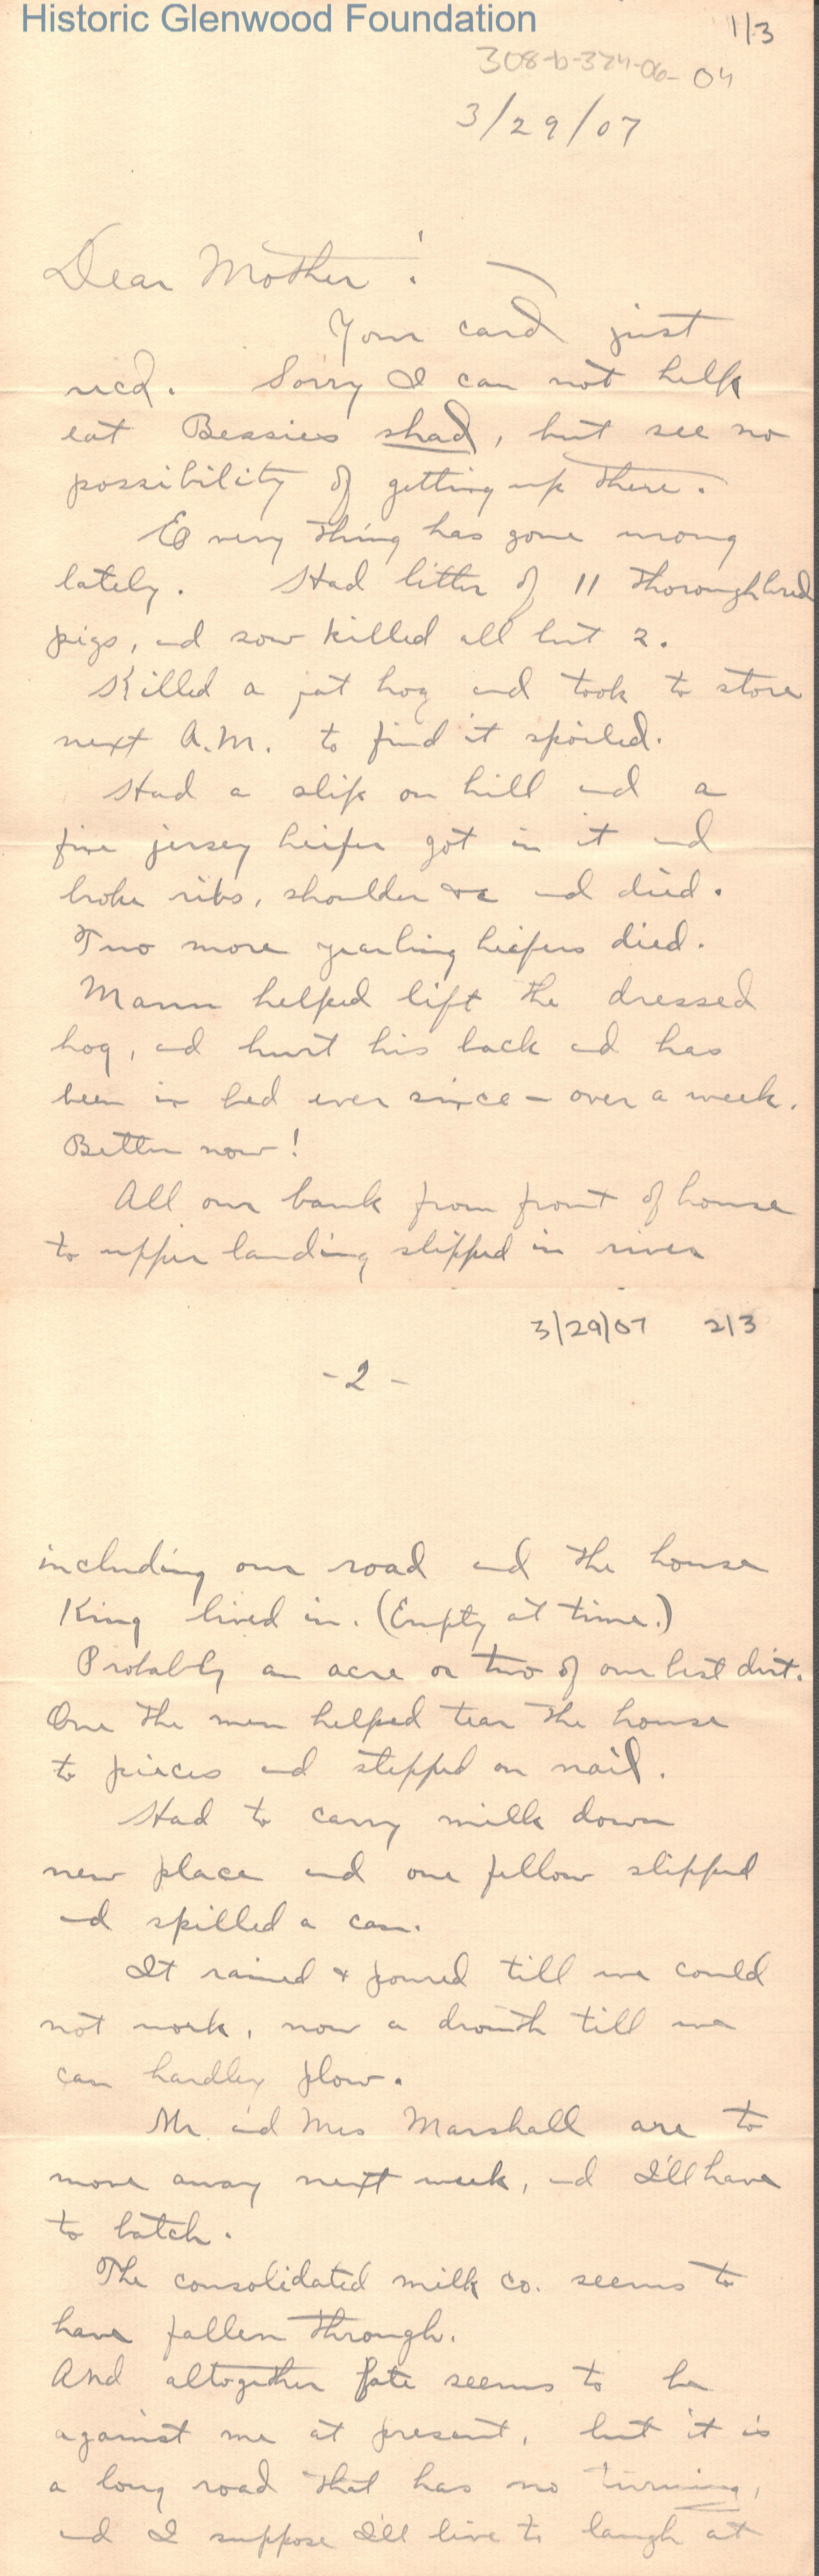 Historic Glenwood Foundation
1/3
308-b-324-06-04
3/29/07
Dear Mother!
Your card just
recd. Sorry I can not help
eat Bessies shad, but see no
possibility of getting up there.
Every thing has gone wrong
lately. Had litter of 11 thoroughbred
pigs, and sow killed all but 2.
Killed a fat hog and took to store
next A.M. to find it spoiled.
Had a slip on hill and a
fine jersey heifer got in it and
broke ribs, shoulder &c and died.
Two more yearling heifers died.
Mann helped lift the dressed
hog, and hurt his back and has
been in bed ever since - over a week.
Better now!
All our bank from front of house
to upper landing slipped in river
3/29/07 2/3
- 2 -
including our road and the house
King lived in. (Empty at time.)
Probably an acre or two of our best dirt.
One the men helped tear the house
to pieces and stepped on nail.
Had to carry milk down
new place and one fellow slipped
and spilled a can.
It rained & poured till we could
not work, now a drouth till we
can hardley plow.
Mr. and Mrs Marshall are to
move away next week, and I'll have
to batch.
The consolidated milk co. seems to
have fallen through.
And altogether fate seems to be
against me at present, but it is
a long road that has no turning,
and I suppose I'll live to laugh at